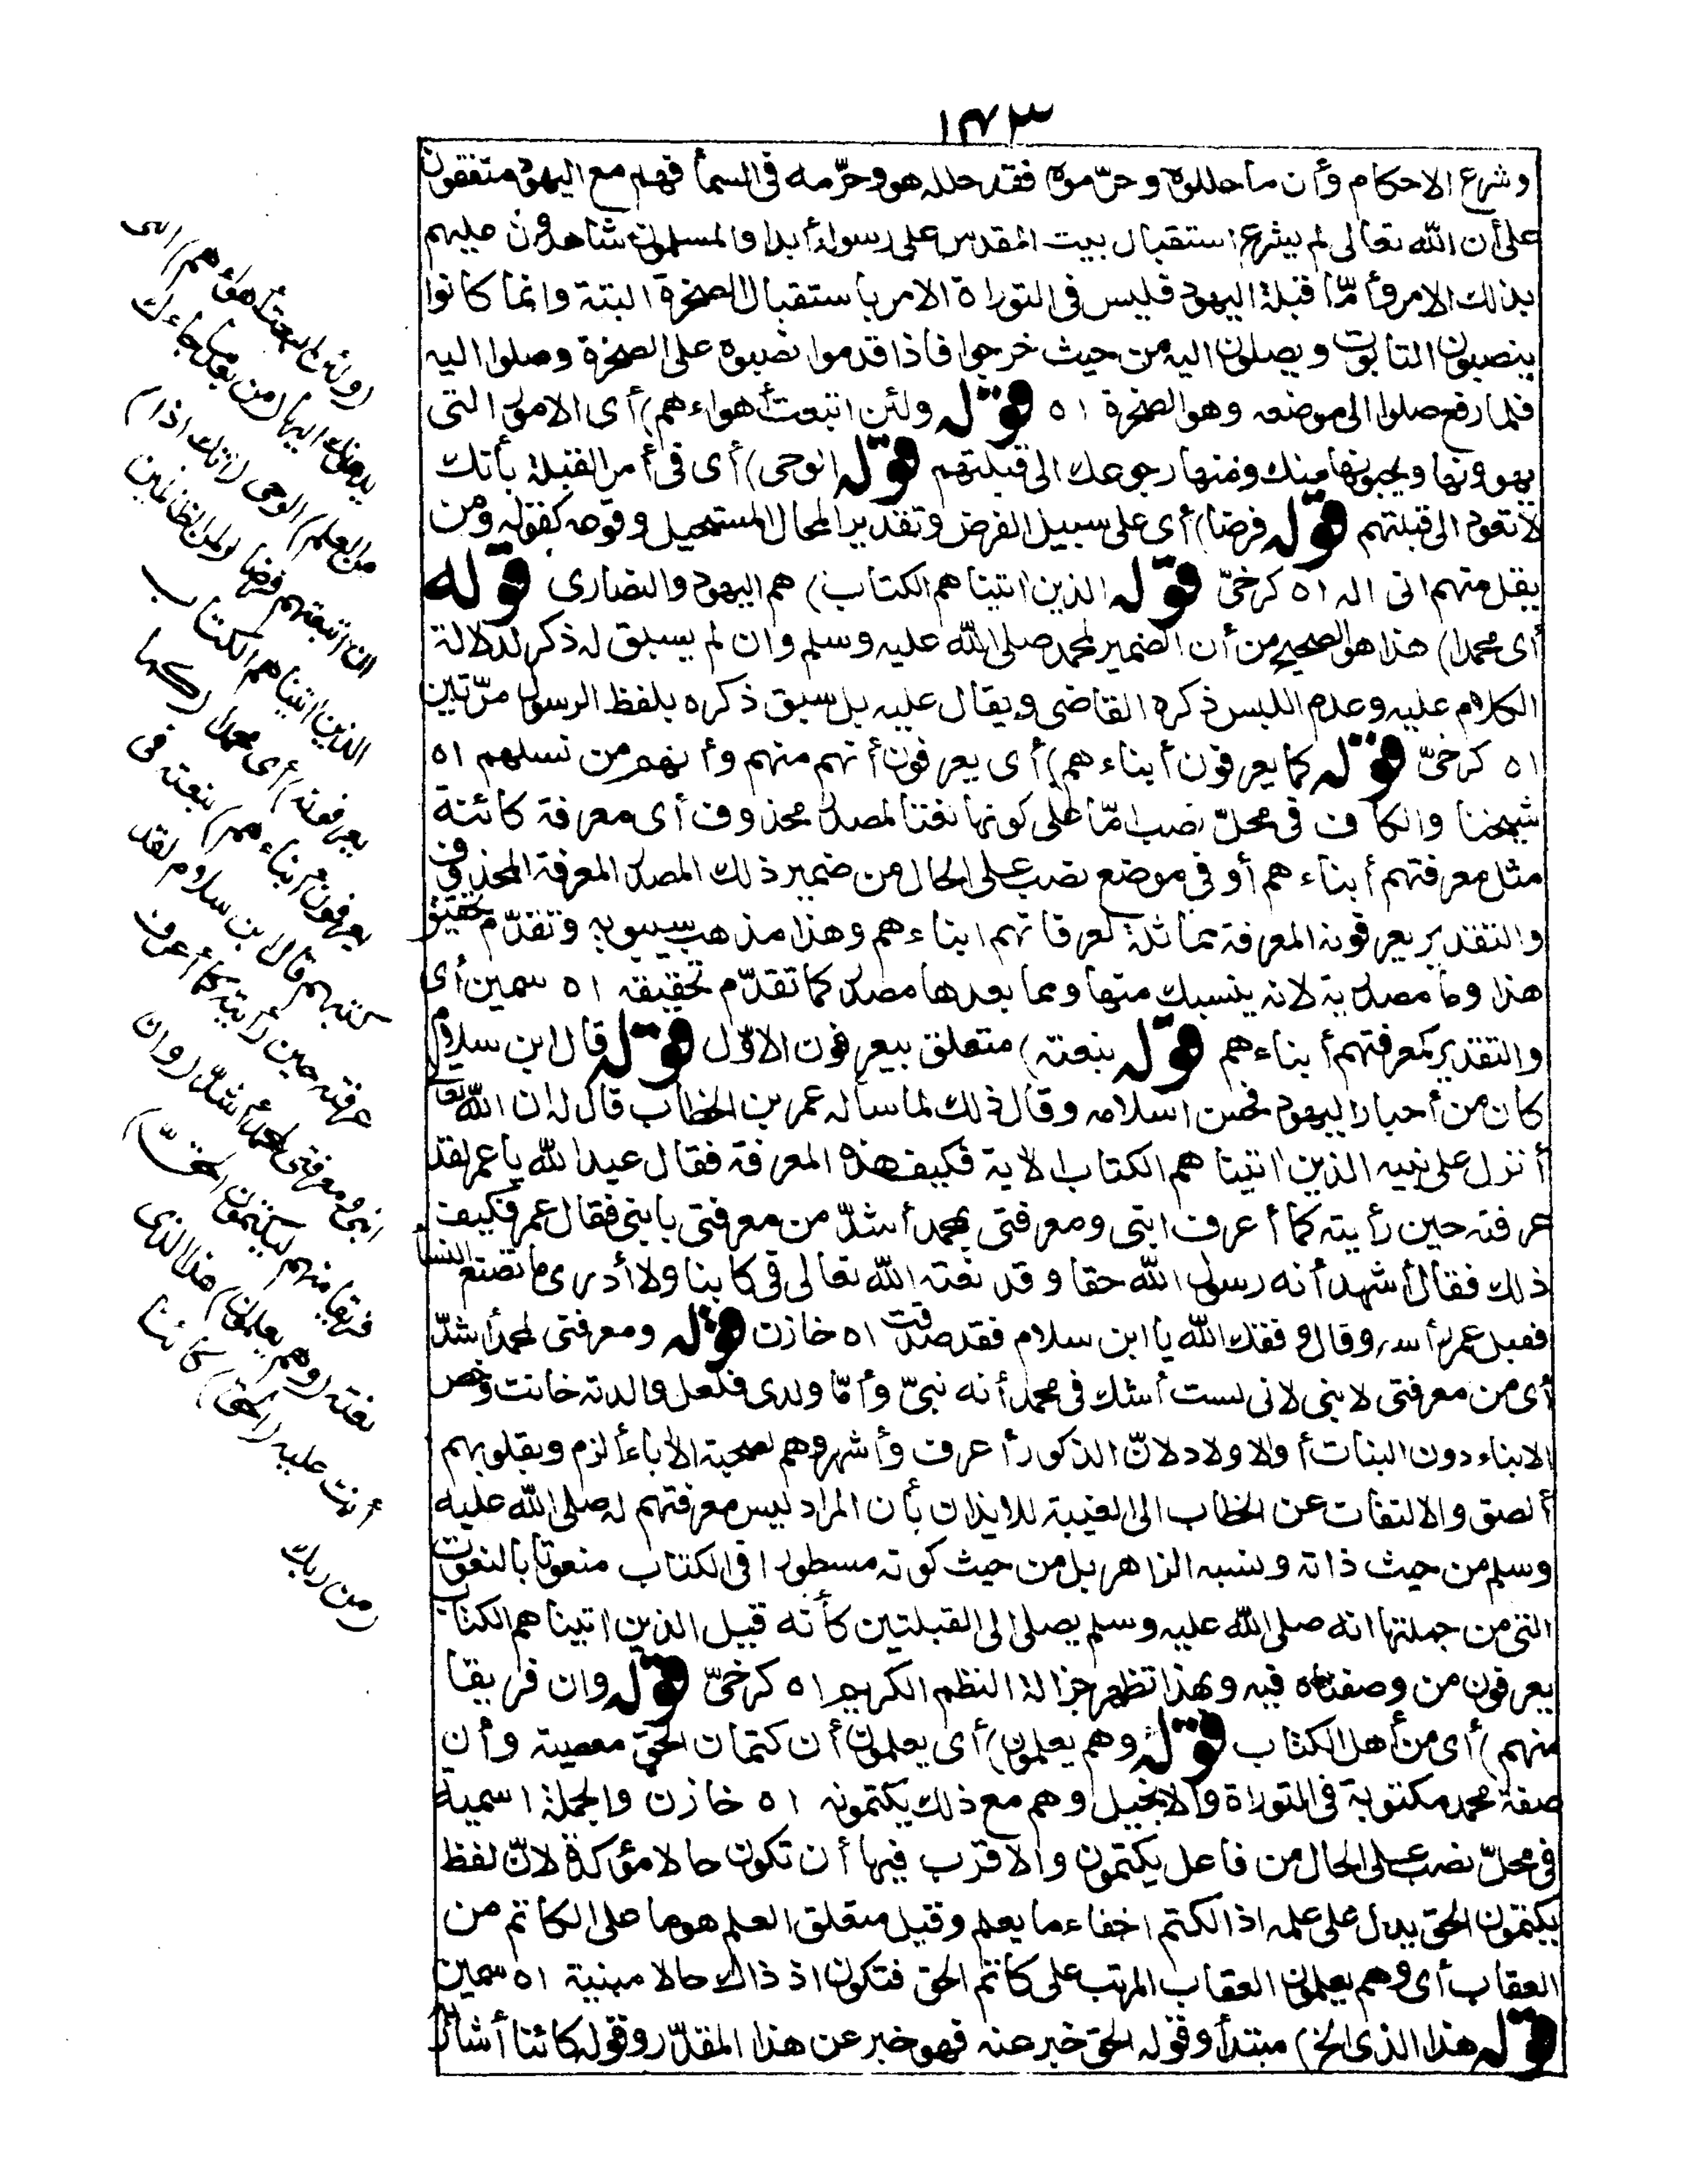 ١٤٣
وشرع الاحكام وأن ما حللوه وحرّموه فقد حلله هو وحرّمه فى السمأ فهم مع اليهود متفقون
على أن الله تعالى لم يشرع استقبال بيت المقدس على رسوله أبدا والمسلمون شاهدون عليهم
بذلك الامر وأمّا قبلة اليهود فليس فى التوراة الامر باستقبال الصخرة البتة وانما كانوا
ينصبون التابوت ويصلون اليه من حيث خرجوا فاذا قدموا نصبوه على الصخرة وصلوا اليه
فلما رفع صلوا الى موضعه وهو الصخرة اه قوله ولئن اتبعت أهواءهم) أى الامور التى
يهوونها ويحبونها منك ومنها رجوعك الى قبلتهم قوله الوحى) أى فى أمر القبلة بأنك
لا تعود الى قبلتهم قوله فرضا) أى على سبيل الفرض وتقدير المحال المستحيل وقوعه كقوله ومن
يقل منهم انى اله اه كرخىّ قوله الذين اتيناهم الكتاب) هم اليهود والنصارى قوله
أى محمدا) هذا هو الصحيح من أن الضمير لمحمد صلى الله عليه وسلم وان لم يسبق له ذكر لدلالة
الكلام عليه وعدم اللبس ذكره القاضى ويقال عليه بل سبق ذكره بلفظ الرسول مرّتين
اه كرخىّ قوله كما يعرفون أبناءهم) أى يعرفون أنهم منهم وأنهم من نسلهم اه
شيخنا والكاف فى محلّ نصب امّا على كونها نعتا لمصدر محذوف أى معرفة كائنة
مثل معرفتهم أبناءهم أو فى موضع نصب على الحال من ضمير ذلك المصدر المعرفة المحذوف
والتقدير يعرفونه المعرفة مماثلة لعرفانهم ابناءهم وهذا مذهب سيبويه وتقدّم تحقيق
هذا وما مصدرية لانه ينسبك منها ومما بعدها مصدر كما تقدّم تحقيقه اه سمين أى
والتقدير كمعرفتهم أبناءهم قوله بنعته) متعلق بيعرفون الاوّل قوله قال ابن سلام
كان من أحبار اليهود فحسن اسلامه وقال ذلك لما سأله عمر بن الخطاب قال له ان الله تعا
أنزل على نبيه الذين اتيناهم الكتاب الاية فكيف هذه المعرفة فقال عبد الله يا عمر لقد
عرفته حين رأيته كما أعرف ابنى ومعرفتى بمحمد أشدّ من معرفتى بابنى فقال عمر فكيف
ذلك فقال أشهد أنه رسول الله حقا وقد نعته الله تعالى فى كتابنا ولا أدرى ما تصنع النسأ
فقبل عمر رأسه وقال وفقك الله يا ابن سلام فقد صدقت اه خازن قوله ومعرفتى لمحمد أشدّ
أى من معرفتى لابنى لانى لست أشك فى محمد أنه نبىّ وأمّا ولدى فلعل والدته خانت وخص
الابناء دون البنات أو الاولاد لانّ الذكور أعرف وأشهر وهم لصحبة الاباء ألزم وبقلوبهم
ألصق والالتفات عن الخطاب الى الغيبة للايذان بأن المراد ليس معرفتهم له صلى الله عليه
وسلم من حيث ذاته ونسبه الزاهر بل من حيث كونه مسطورا فى الكتاب منعوتا بالنعوت
التى من جملتها انه صلى الله عليه وسلم يصلى الى القبلتين كأنه قيل الذين اتيناهم الكتاب
يعرفون من وصفناه فيه وبهذا تظهر جزالة النظم الكريم اه كرخىّ قوله وان فريقا
منهم) أى من أهل الكتاب قوله وهم يعلمون) أى يعلمون أن كتمان الحق معصية وأن
صفة محمد مكتوبة فى التوراة والانجيل وهم مع ذلك يكتمونه اه خازن والجملة اسمية
فى محلّ نصب على الحال من فاعل يكتمون والاقرب فيها أن تكون حالا مؤكدة لانّ لفظ
يكتمون الحق يدل على علمه اذ الكتم اخفاء ما يعلم وقيل متعلق العلم هو ما على الكاتم من
العقاب أى وهم يعلمون العقاب المرتب على كاتم الحق فتكون اذ ذاك حالا مبينة اه سمين
قوله هذا الذى الخ) مبتدأ وقوله الحق خبر عنه فهو خبر عن هذا المقدّر وقوله كائنا أشار
(ولئن اتبعت أهواءهم) التى
يدعونك اليها (من بعد ما جاءك
من العلم) الوحى (انك اذا)
ان اتبعتهم فرضا (لمن الظالمين
الذين اتيناهم الكتاب
يعرفونه) أى محمدا (كما
يعرفون أبناءهم) بنعته فى
كتبهم قال ابن سلام لقد
عرفته حين رأيته كما أعرف
ابنى ومعرفتى لمحمد أشدّ (وان
فريقا منهم ليكتمون الحقّ)
نعته (وهم يعلمون) هذا الذى
أنت عليه (الحق) كائنا
(من ربك